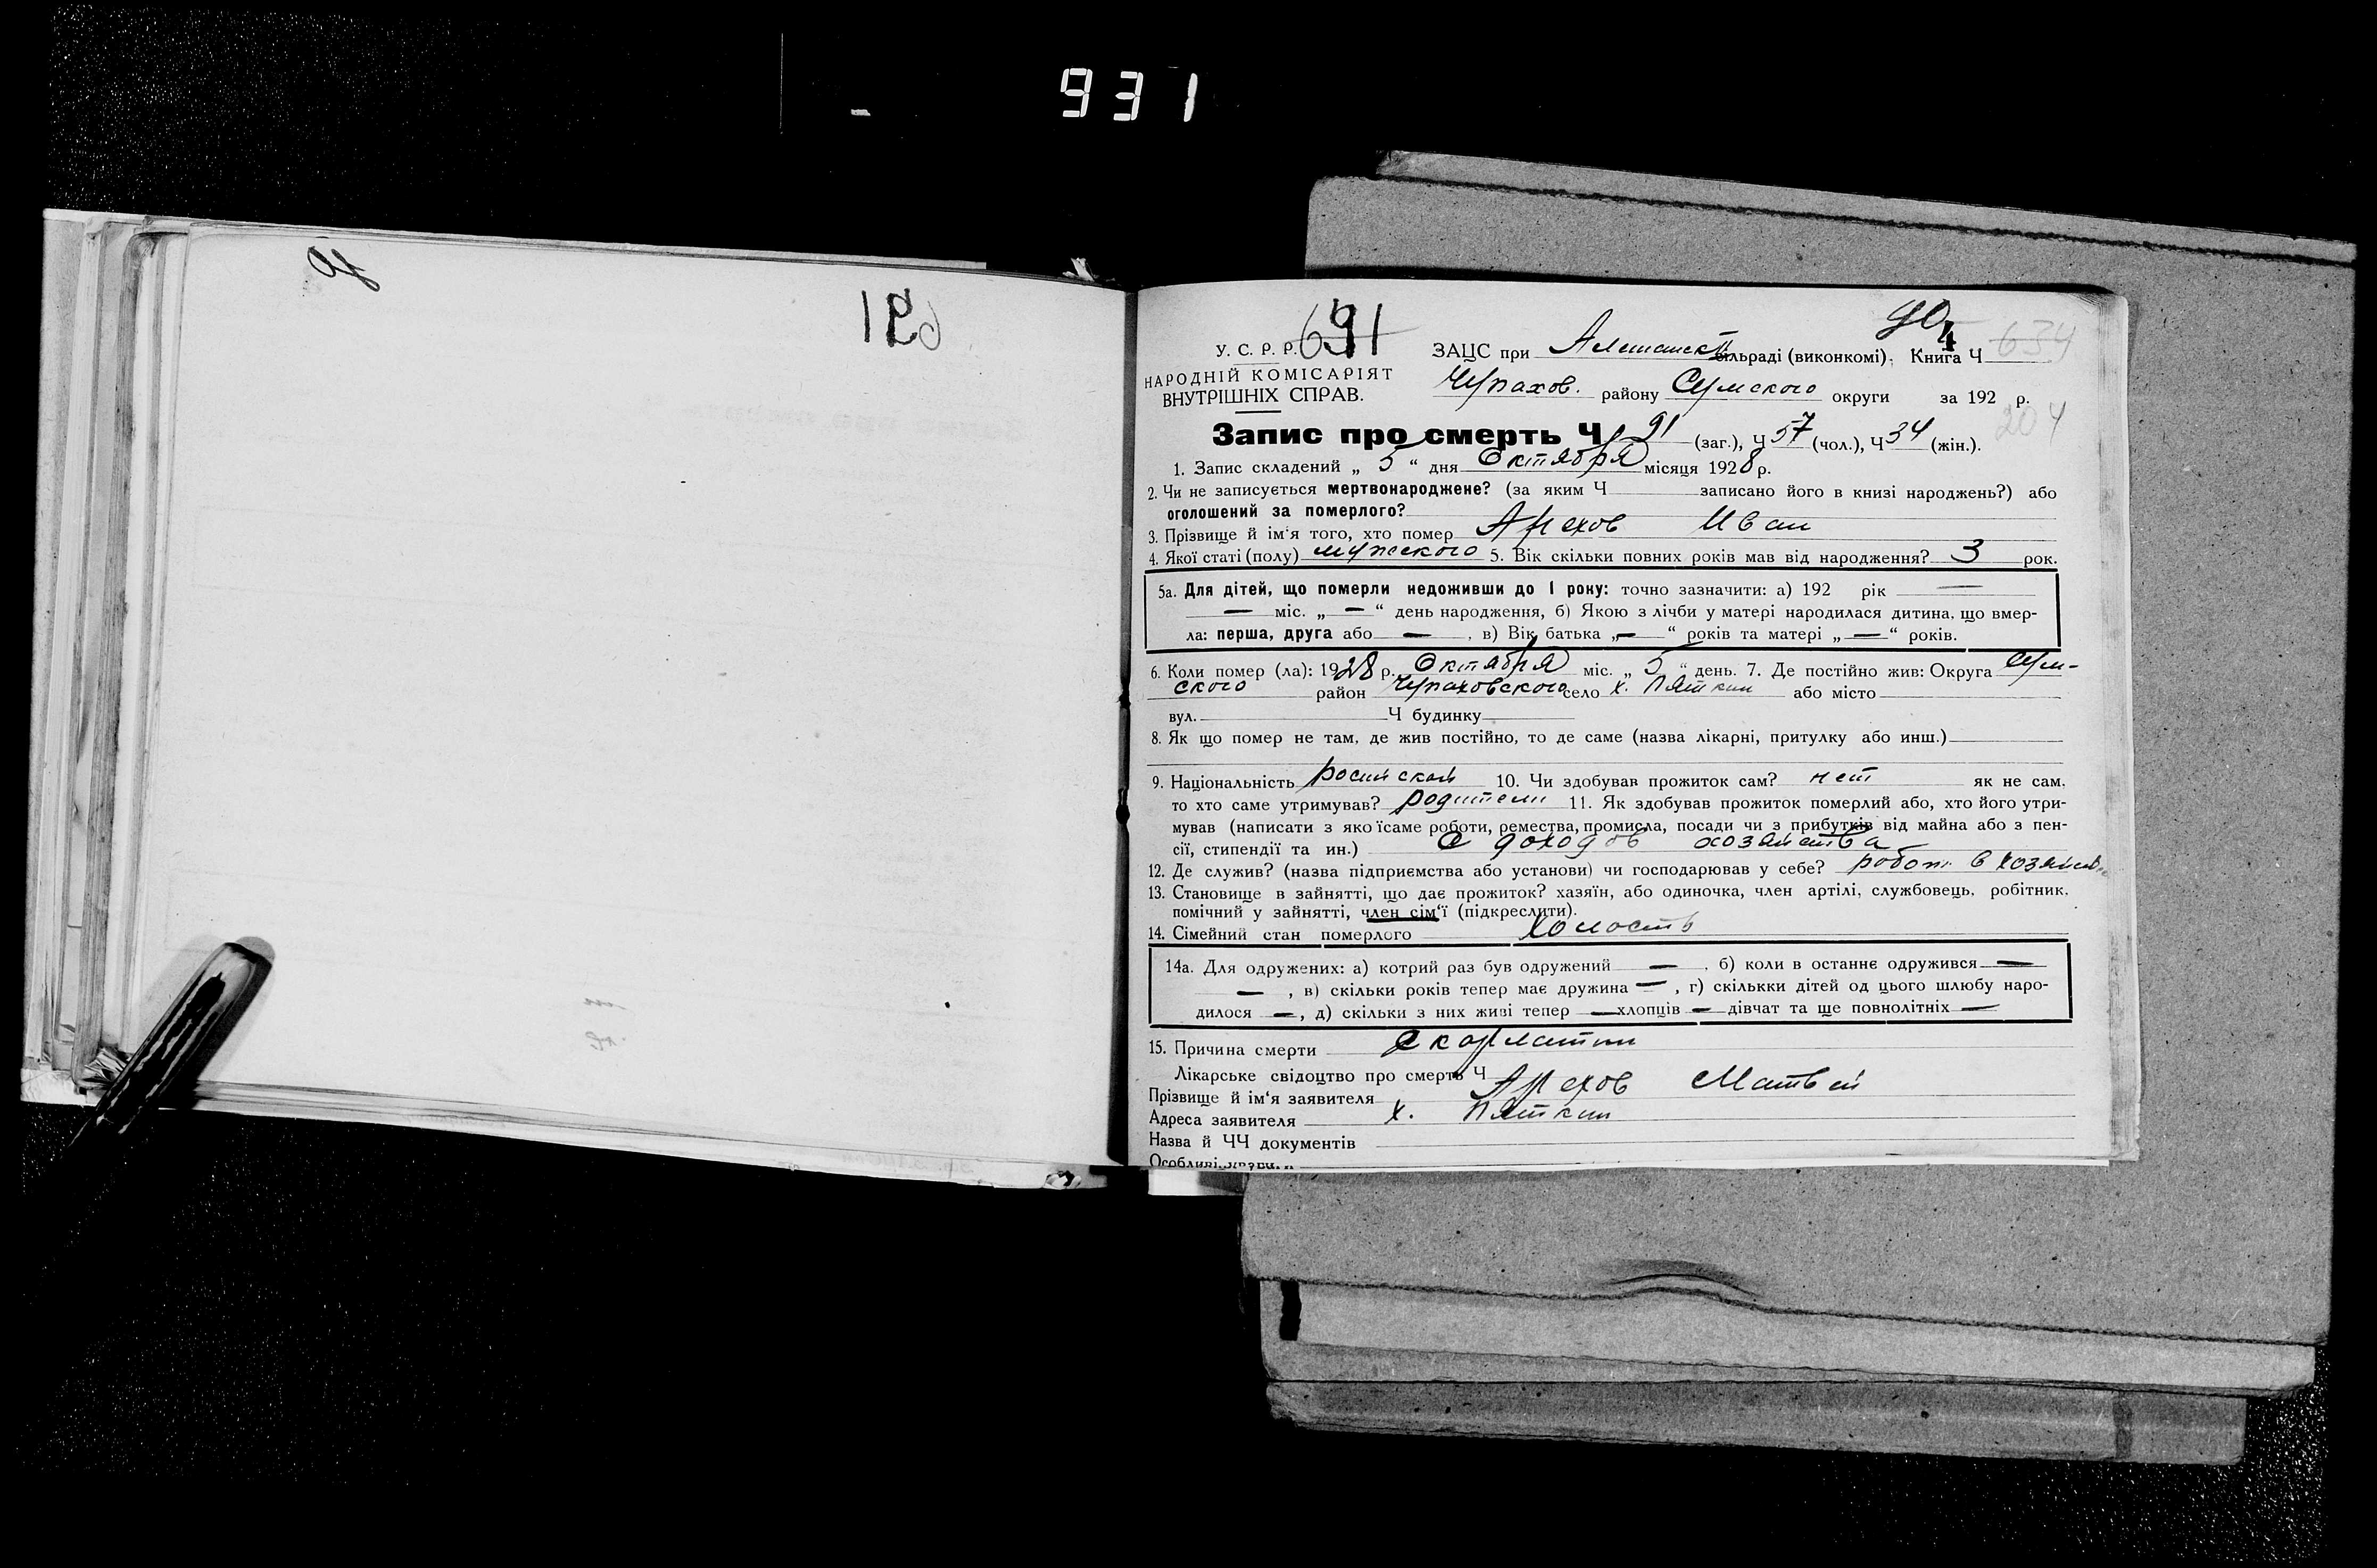 931
691
904
634
У. С. Р. Р.
НАРОДНІЙ КОМІСАРІЯТ
ВНУТРІШНІХ СПРАВ.
ЗАЦС при сільраді (виконкомі). Книга Ч
Чупахов. району Сумского округи за 192 р.
204
Запис про смерть Ч 91 (заг.), Ч 57 (чол.), Ч 34 (жін.).
1. Запис складений „ 5 “ дня Октября місяця 1928 р.
2. Чи не записується мертвонароджене? (за яким Ч записано його в книзі народжень?) або
оголошений за померлого?
3. Прізвище й ім'я того, хто помер Арехов Иван
4. Якої статі (полу) мужского 5. Вік скільки повних років мав від народження? 3 рок.
5а. Для дітей, що померли недоживши до 1 року: точно зазначити: а) 192 рік —
— міс. „ — “ день народження, б) Якою з лічби у матері народилася дитина, що вмер-
ла: перша, друга або — , в) Вік батька „ — “ років та матері „ — “ років.
6. Коли помер (ла): 1928 р. Октября міс. „ 5 “ день. 7. Де постійно жив: Округа Сум-
ского район Чупаховского село х. Пяткин або місто
вул. Ч будинку
8. Як що помер не там, де жив постійно, то де саме (назва лікарні, притулку або инш.)
9. Національність 10. Чи здобував прожиток сам? нет як не сам,
то хто саме утримував? родители 11. Як здобував прожиток померлий або, хто його утри-
мував (написати з якоїсаме роботи, ремества, промисла, посади чи з прибутків від майна або з пен-
сії, стипендії та ин.) С доходов хозяйства
12. Де служив? (назва підприємства або установи) чи господарював у себе? работ. в
13. Становище в зайнятті, що дає прожиток? хазяїн, або одиночка, член артілі, службовець, робітник,
помічний у зайнятті, член сім'ї (підкреслити).
14. Сімейний стан померлого
14а. Для одружених: а) котрий раз був одружений — , б) коли в останнє одружився —
— , в) скільки років тепер має дружина — , г) скількки дітей од цього шлюбу наро-
дилося — , д) скільки з них живі тепер — хлопців — дівчат та ще повнолітніх —
15. Причина смерти Скарлатин
Лікарське свідоцтво про смерть Ч
Прізвище й ім'я заявителя Арехов Матвей
Адреса заявителя х. Пяткин
Назва й ЧЧ документів